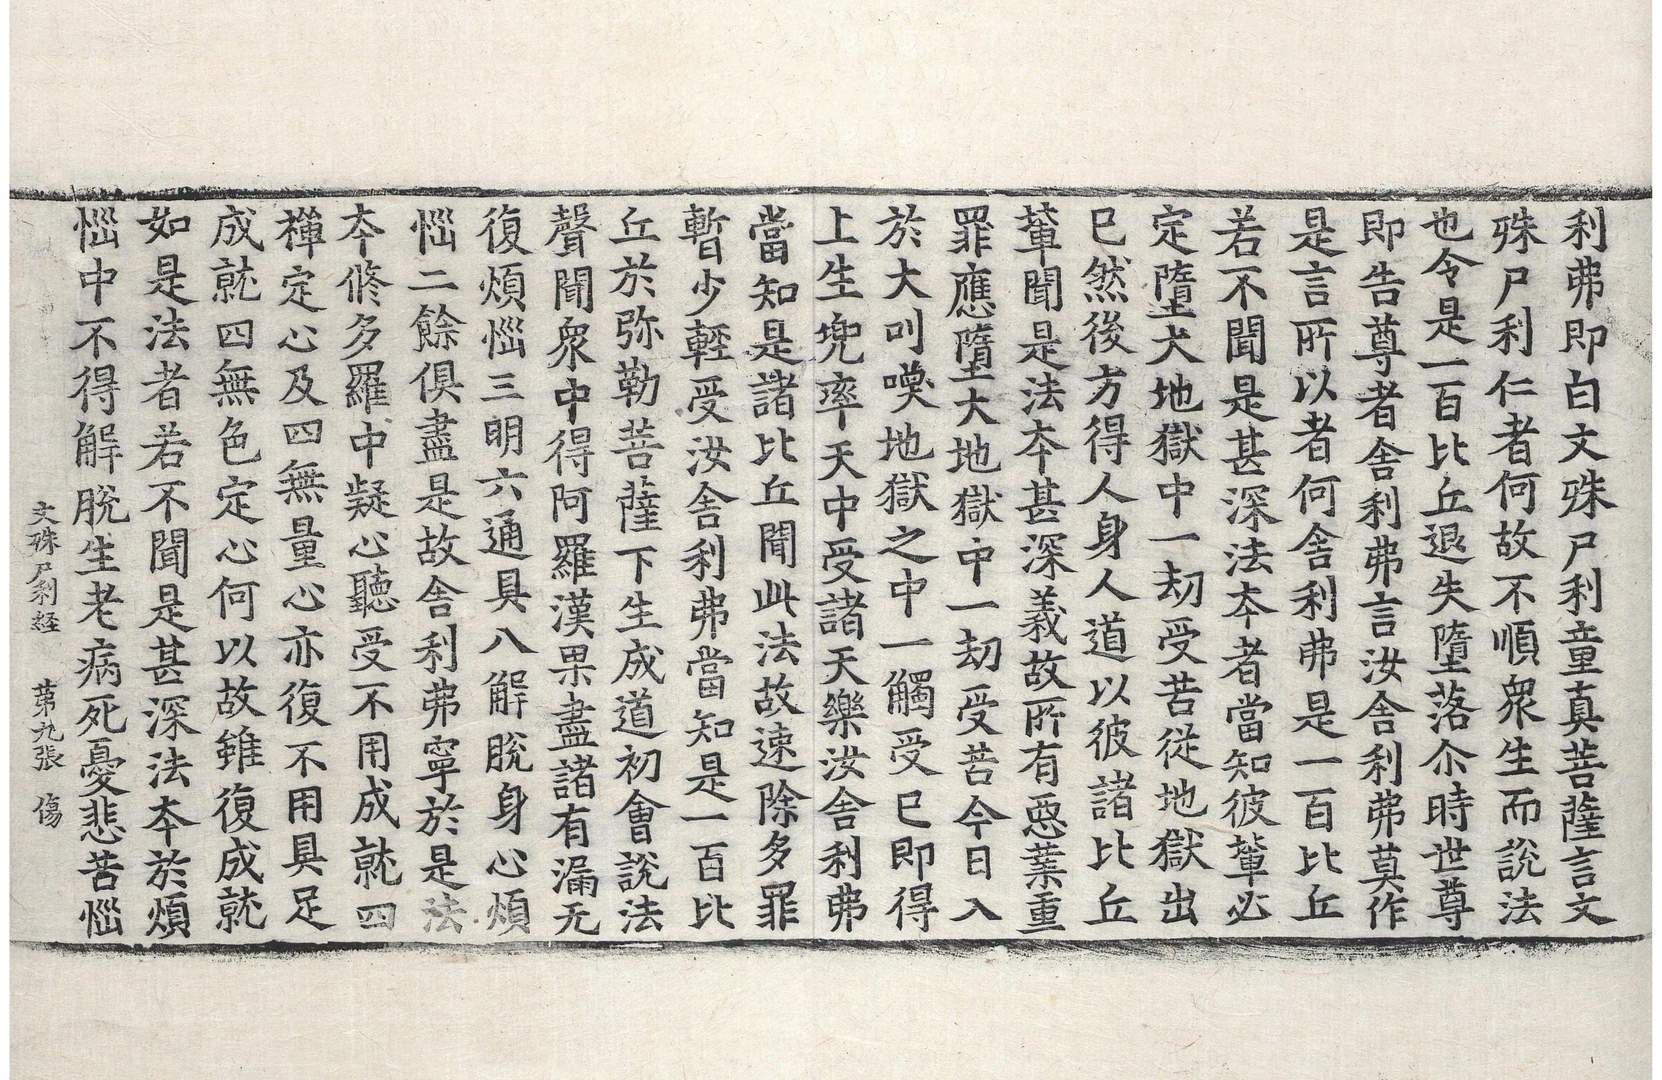 利弗即白文殊尸利童真菩薩言文
殊尸利仁者何故不順衆生而說法
也令是一百比丘退失墮落尒時世尊
即告尊者舍利弗言汝舍利弗莫作
是言所以者何舍利弗是一百比丘
若不聞是甚深法夲者當知彼輩必
定墮大地獄中一劫受苦從地獄出
已然後方得人身人道以彼諸比丘
輩聞是法夲甚深義故所有惡業重
罪應墮大地獄中一劫受苦今日入
於大叫喚地獄之中一觸受已即得
上生兜率天中受諸天樂汝舍利弗
當知是諸比丘聞此法故速除多罪
暫少輕受汝舍利弗當知是一百比
丘於弥勒菩薩下生成道初會說法
聲聞衆中得阿羅漢果盡諸有漏无
復煩惱三明六通具八解脫身心煩
惱二餘俱盡是故舍利弗寧於是法
夲修多羅中疑心聽受不用成就四
禪定心及四無量心亦復不用具足
成就四無色定心何以故雖復成就
如是法者若不聞是甚深法夲於煩
惱中不得解脫生老病死憂悲苦惱
文殊尸利経 第九張 傷